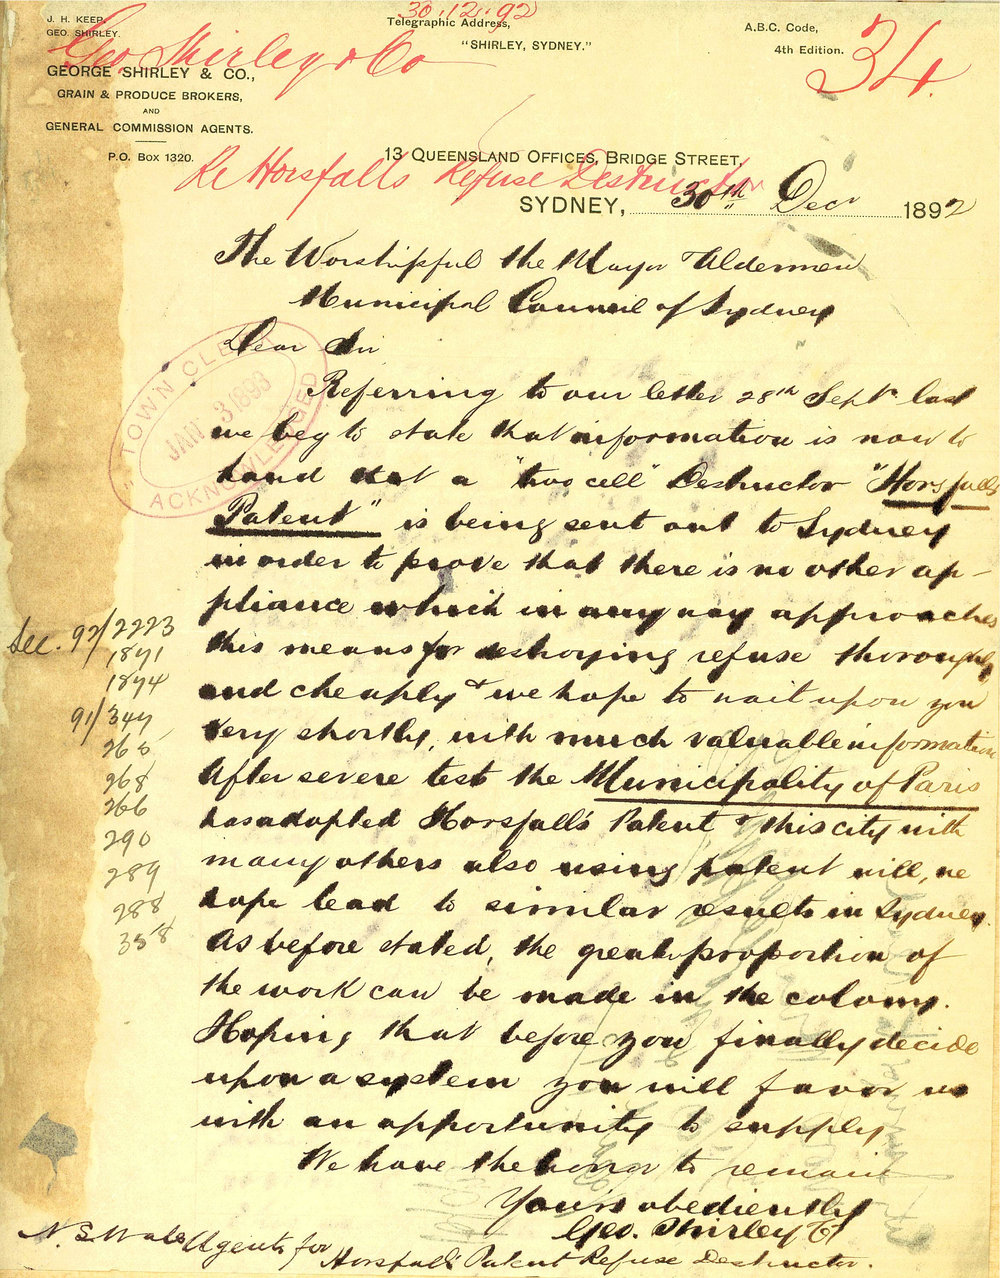 J. H. KEEP.
GEO. SHIRLEY.
30.12.92
Telegraphic Address,
"SHIRLEY, SYDNEY."
A.B.C. Code,
4th Edition.
34.
Geo. Shirley & Co
GEORGE SHIRLEY & CO.,
GRAIN & PRODUCE BROKERS,
AND
GENERAL COMMISSION AGENTS.
P.O. Box 1320.
13 QUEENSLAND OFFICES, BRIDGE STREET,
Re Horsfalls Refuse Destructor
SYDNEY, 30th Decr 1892
The Worshipful the Mayor Aldermen
Municipal Council of Sydney
Dear Sir
TOWN CLERK
JAN 3 1893
ACKNOWLEDGED
Referring to our letter 28th Septr last
we beg to state that information is now to
hand that a "two cell" Destructor "Horsfalls
Patent" is being sent out to Sydney
in order to prove that there is no other ap-
pliance which in any way approaches
this means for destroying refuse thoroughly
and cheaply & we hope to wait upon you
very shortly, with much valuable information
After severe test the Municipality of Paris
has adopted Horsfall's Patent & this city with
many others also using patent will, we
hope lead to similar results in Sydney.
As before stated, the great proportion of
the work can be made in the colony.
Hoping that before you finally decide
upon a system you will favor us
with an opportunity to supply
We have the honor to remain
Yours obediently
Geo. Shirley Co
N. S. Wales Agents for
Horsfall's Patent Refuse Destructor.
See. 92/2223
1871
1874
91/347
265
268
266
290
289
288
358